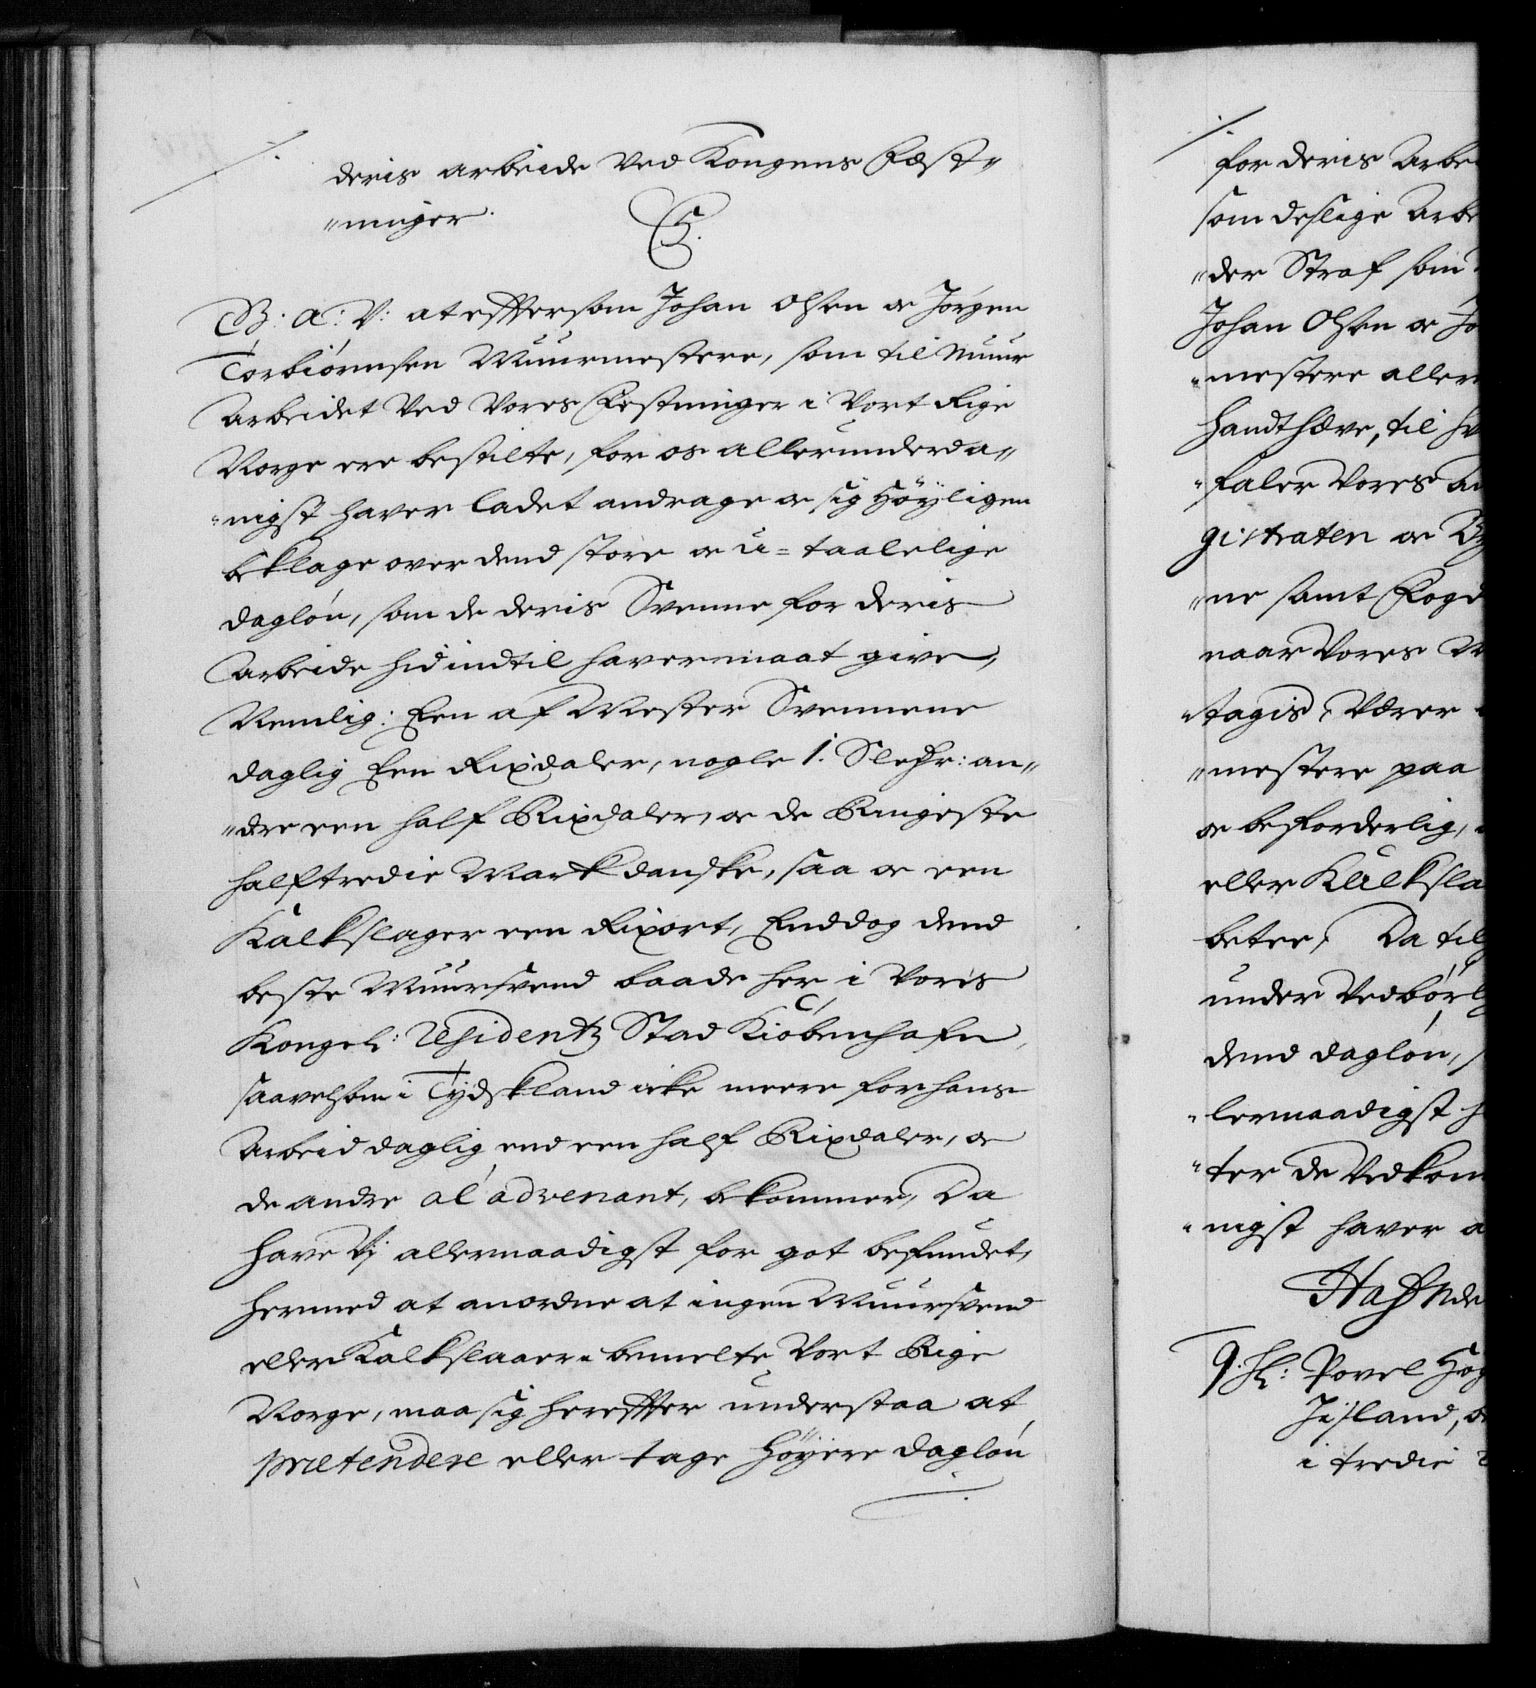 deris arbeide ved Kongens Fæst„
„ninger.
C5.
G: A: V: at eftersom Johan Olsen oc Jørgen
Torbiørnsen Muurmestere, som til Muur
Arbeidet Ved Vores Festninger i Vort Rige
Norge ere bestilte, for os allerunderda„
„nigst haver ladet andrage oc sig Høÿligen
beklage over dend store oc u=taalelige
dagløn, som de deris Svenne for deris
Arbeide hid indtil haver maat give,
Nemlig: Een af Mester Svennene
daglig Een Rixdaler, nogle 1. Sledr: an„
„dre een half Rixdaler, oc de Ringeste
halftredie Mark danske, saa oc een
Kalkslager een Rixort, Enddog dend
beste Muursvend baade her i Voris
Kongel: Residentz Stad Kiøbenhafn,
saavelsom i Tydskland icke meere for hans
Arbeid daglig end een half Rixdaler, oc
de andre al'advenant, bekommer, Da
have Vi allernaadigst for got befundet,
hermed at anordne at ingen Muursvend
eller Kalkslaaer i bemelte Vort Rige
Norge, maa sig herefter understaa at
prætendere eller tage Høÿere dagløn
for deris Arbei
som deslige Arbe
„der Straf som
Johan Olsen oc Jø
„mestere aller
handthæve, til hv
„faler Vores
gistraten oc By
„ne samt Fogd
naar Vores
„tagis, Værer
„mestere paa
oc beforderlig,
eller Kalksla
beter, Da til
under Vedbørl
dend dagløn,
„lernaadigst h
„ter de Vedkom
„nigst haver a
Hafn de
9. Hr: Povel Høy
Jisland,
i tredie